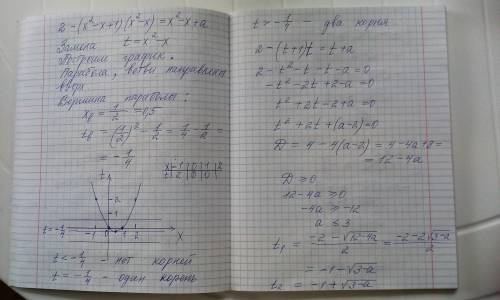 2-(x²-x+1)(x²-x)=x²-x+a
Замена t=x²-x
Построим график.
Парабола, ветви направлены
вверх
Вершина параболы:
x₀ = 1/2 = 0,5
t₀ = (1/2)² - 1/2 = 1/4 - 1/2 =
= -1/4
x|-1|0|1|2
t|2|0|0|
t
2
1
t=-1/4 -1 0 1 2 x
t < -1/4 - нет корней
t = -1/4 - один корень
t > -1/4 - два корня
2-(t+1)t = t+a
2-t²-t-t-a=0
-t²-2t+2-a=0
t²+2t-2+a=0
t²+2t+(a-2)=0
D = 4-4(a-2)=4-4a+8=
= 12-4a
D ≥ 0
12-4a ≥ 0
-4a ≥ -12
a ≤ 3
t₁ = (-2-√(12-4a))/2 = (-2-2√(3-a))/2
= -1-√(3-a)
t₂ = -1+√(3-a)